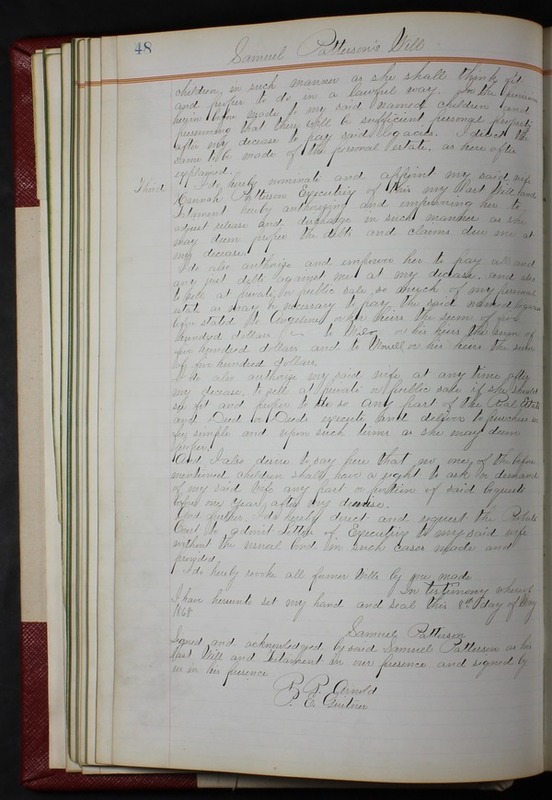 48
Samuel Patterson's Will
children, in such manner as she shall think fit
and prefer to do in a lawful way. In the
made to my said named children and
presuming that there will be sufficient personal property
after my decease to pay said legacies. I direct the
same to be made of the personal estate, as here after
explained.
Third I do hereby nominate and appoint my said wife
Hannah Patterson Executrix of this my Last Will and
Testament hereby authorizing and empowering her to
adjust release and discharge in such manner as she
may deem proper the debts and claims due me at
my decease.
I do also authorize and empower her to pay all and
any just debts against me at my decease, and also
to sell at private, or public sale, so much of my personal
estate as may be necessary to pay the said named
before stated to or her heirs the sum of five
hundred dollars to or his heirs the sum of
five hundred dollars and to or his heirs the sum
of five hundred dollars.
I do also authorize my said wife, at any time after
my decease, to sell at private or public sale if she should
see fit and prefer to do so any part of the Real Estate
and Deed or Deeds execute and deliver to purchaser in
fee simple and upon such terms as she may deem
proper.
And I also desire to say here that no one of the before
mentioned children shall have a right to ask or demand
of my said wife any part or portion of said bequests
before one year after my decease.
And further, I do hereby direct and request the Probate
Court to admit Letters of Executrix to my said wife
without the usual bond in such cases made and
provided.
I do hereby revoke all former Wills by me made
In testimony whereof
I have hereunto set my hand and seal this 8th day of May
1868
Samuel Patterson
Signed and acknowledged by said Samuel Patterson as his
Last Will and Testament in our presence and signed by
us in his presence
Arnold
P. E.